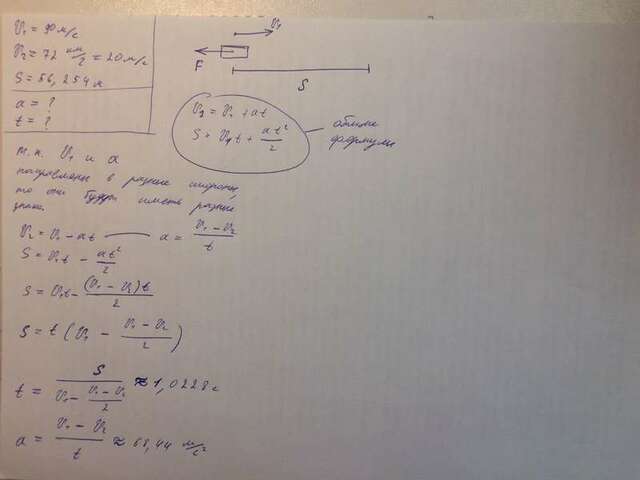 V₁ = 90 м/с
V₂ = 72 км/ч = 20 м/с
S = 56,254 м
a = ?
t = ?
V₁
F
S
V₂ = V₁ + at
S = V₁t + at²/2
общие
формулы
т.к. V₁ и a
направлены в разные стороны,
то они будут иметь разные
знаки.
V₂ = V₁ - at — a = (V₁ - V₂)/t
S = V₁t - at²/2
S = V₁t - (V₁ - V₂)t/2
S = t(V₁ - (V₁ - V₂)/2)
t = S/(V₁ - (V₁ - V₂)/2) ≈ 1,0228 с
a = (V₁ - V₂)/t ≈ 68,44 м/с²